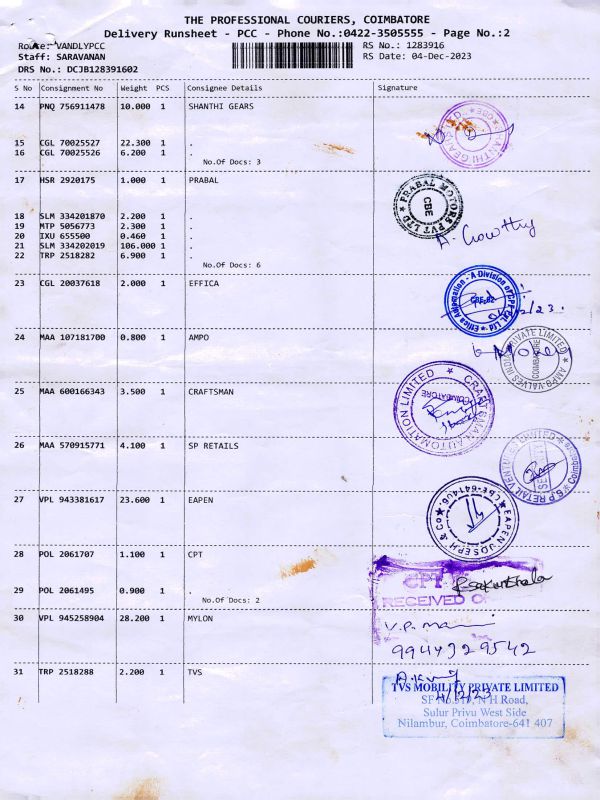 THE PROFESSIONAL COURIERS, COIMBATORE
Delivery Runsheet - PCC - Phone No.:0422-3505555 - Page No.:2
Route: VANDLYPCC
RS No.: 1283916
Staff: SARAVANAN
RS Date: 04-Dec-2023
DRS No.: DCJB128391602
S No Consignment No Weight PCS Consignee Details Signature
14 PNQ 756911478 10.000 1 SHANTHI GEARS
15 CGL 70025527 22.300 1 .
16 CGL 70025526 6.200 1 .
No.Of Docs: 3
17 HSR 2920175 1.000 1 PRABAL
PRABAL MOTORS PVT LTD
CBE
18 SLM 334201870 2.200 1 .
19 MTP 5056773 2.300 1 .
20 IXU 655500 0.460 1 .
21 SLM 334202019 106.000 1 .
22 TRP 2518282 6.900 1 .
No.Of Docs: 6
A. Gowthry
23 CGL 20037618 2.000 1 EFFICA
24 MAA 107181700 0.800 1 AMPO
AMPO-VALVES INDIA PRIVATE LIMITED
COIMBATORE
25 MAA 600166343 3.500 1 CRAFTSMAN
CRAFTSMAN AUTOMATION LIMITED
COIMBATORE
26 MAA 570915771 4.100 1 SP RETAILS
S.P RETAIL VENTURES LIMITED
Coimbatore
27 VPL 943381617 23.600 1 EAPEN
EAPEN JOSEPH & Co
28 POL 2061707 1.100 1 CPT
CPT
29 POL 2061495 0.900 1 .
No.Of Docs: 2
RECEIVED
30 VPL 945258904 28.200 1 MYLON
V.P.
9944329542
31 TRP 2518288 2.200 1 TVS
4/12/23
TVS MOBILITY PRIVATE LIMITED
N H Road,
Sulur Privu West Side
Nilambur, Coimbatore-641 407